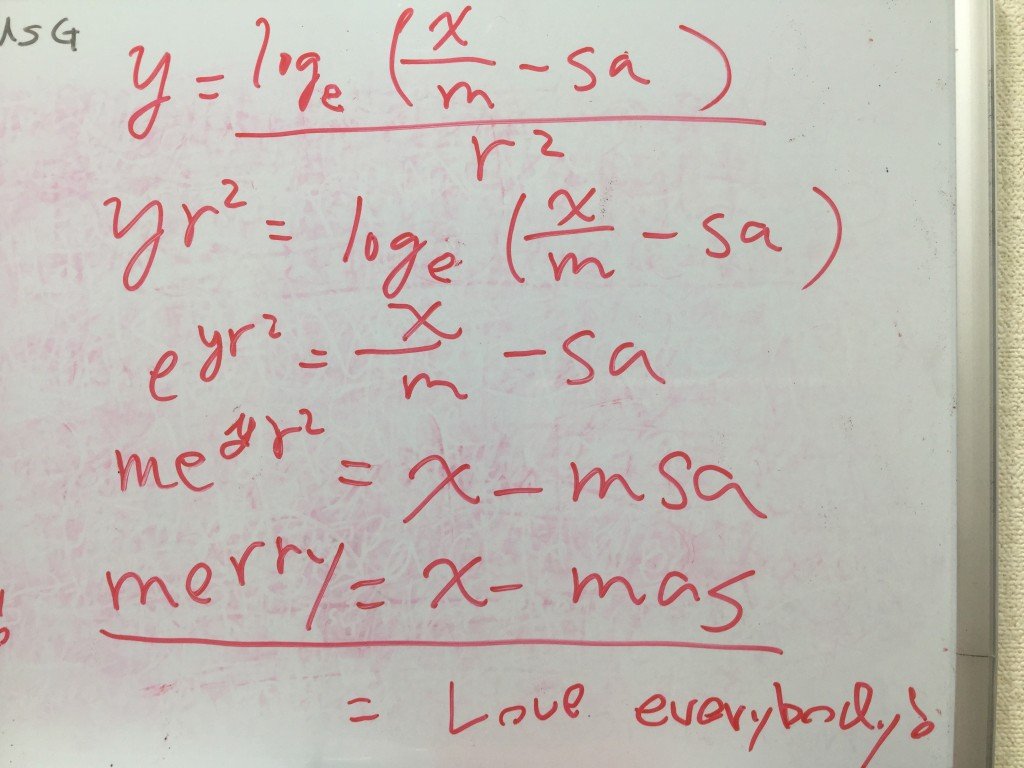 USG
y = log_e (x/m - sa) / r²
yr² = log_e (x/m - sa)
e^yr² = x/m - sa
me^yr² = x - msa
me^rry = x - mas
= Love everybody!